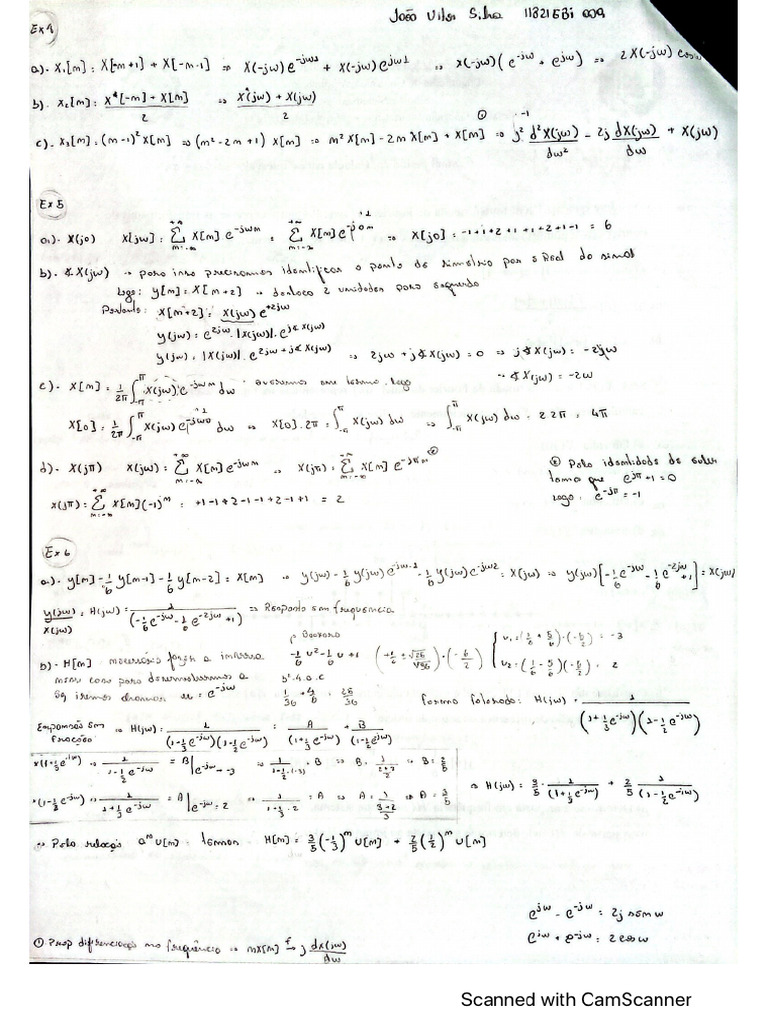 João Vitor Silva 11821EBI009
Ex 4
a). X₁[m] : X[-m+1] + X[-m-1] ⇒ X(-jω)e^{-jω1} + X(-jω)e^{jω1} ⇒ X(-jω)(e^{-jω} + e^{jω}) ⇒ 2X(-jω)cosω
b). X₂[m] : (X*[-m] + X[m])/2 ⇒ (X*(jω) + X(jω))/2
c). X₃[m] : (m-1)² X[m] ⇒ (m² - 2m + 1) X[m] ⇒ m² X[m] - 2m X[m] + X[m] ①⇒ j² d²X(jω)/dω² - 2j dX(jω)/dω + X(jω)
Ex 5
a). X(j0) X[jω] : Σ X[m] e^{-jωm} : Σ X[m] e^{-j0m} ⇒ X[j0] : -1+1+2+1+1+2+1-1 = 6
b). ∢ X(jω) → para isso precisamos identificar o ponto de simetria por o Real do sinal
Logo : y[m] : X[m+2] → desloca 2 unidades para esquerda
Portanto : X[m+2] : X(jω) e^{+2jω}
y(jω) : e^{2jω} . |X(jω)| . e^{j∢X(jω)}
y(jω) : |X(jω)| . e^{2jω + j∢X(jω)} ⇒ 2jω + j∢X(jω) = 0 ⇒ j∢X(jω) : -2jω
→ ∢X(jω) = -2ω
c). X[m] : 1/2π ∫ X(jω) e^{-jωm} dω logo
X[0] : 1/2π ∫ X(jω) e^{-jω0} dω ⇒ X[0] . 2π = ∫ X(jω) dω ⇒ ∫ X(jω) dω = 2 2π = 4π
d). X(jπ) X(jω) : Σ X[m] e^{-jωm} ⇒ X(jπ) = Σ X[m] e^{-jπm} ②
② Pela identidade de euler
temos que e^{jπ} + 1 = 0
Logo : e^{-jπ} = -1
X(jπ) : Σ X[m] (-1)^m : +1-1+2-1-1+2-1+1 = 2
Ex 6
a). y[m] - 1/6 y[m-1] - 1/6 y[m-2] = X[m] ⇒ y(jω) - 1/6 y(jω) e^{-jω.1} - 1/6 y(jω) e^{-jω2} = X(jω) ⇒ y(jω) [-1/6 e^{-jω} - 1/6 e^{-2jω} + 1] = X(jω)
y(jω)/X(jω) = H(jω) = 1/(-1/6 e^{-jω} - 1/6 e^{-2jω} + 1) ⇒ Resposta em frequência
b). H[m] necessário fazer a inversa
nesse caso para desenvolvermos a
eq iremos chamar u = e^{-jω}
Baskara
-1/6 u² - 1/6 u + 1
b² - 4.a.c
1/36 + 4/6 : 25/36
U₁ : (1/6 + 5/6) . (-6/2) = -3
U₂ : (1/6 - 5/6)(-6/2) . 2
forma fatorada : H(jω) = 1/((1 + 1/3 e^{-jω})(1 - 1/2 e^{-jω}))
Expansão em
fração ⇒ H(jω) : 1/((1 + 1/3 e^{-jω})(1 - 1/2 e^{-jω})) = A/(1 + 1/3 e^{-jω}) + B/(1 - 1/2 e^{-jω})
x(1 + 1/3 e^{-jω}) ⇒ 1/(1 - 1/2 e^{-jω}) = B | e^{-jω} → -3
x(1 - 1/2 e^{-jω}) ⇒ 1/(1 + 1/3 e^{-jω}) = A | e^{-jω} = 2 ⇒ 1/(1 + 1/3 . 2) = A
⇒ H(jω) : 3/5 . 1/(1 + 1/3 e^{-jω}) + 2/5 1/(1 - 1/2 e^{-jω})
⇒ Pela relação a^m U[m] : temos H[m] = 3/5 (-1/3)^m U[m] + 2/5 (1/2)^m U[m]
e^{jω} - e^{-jω} : 2j senω
e^{jω} + e^{-jω} : 2 cosω
① Prop diferenciação na frequência ⇒ mX[m] →F j dX(jω)/dω
Scanned with CamScanner